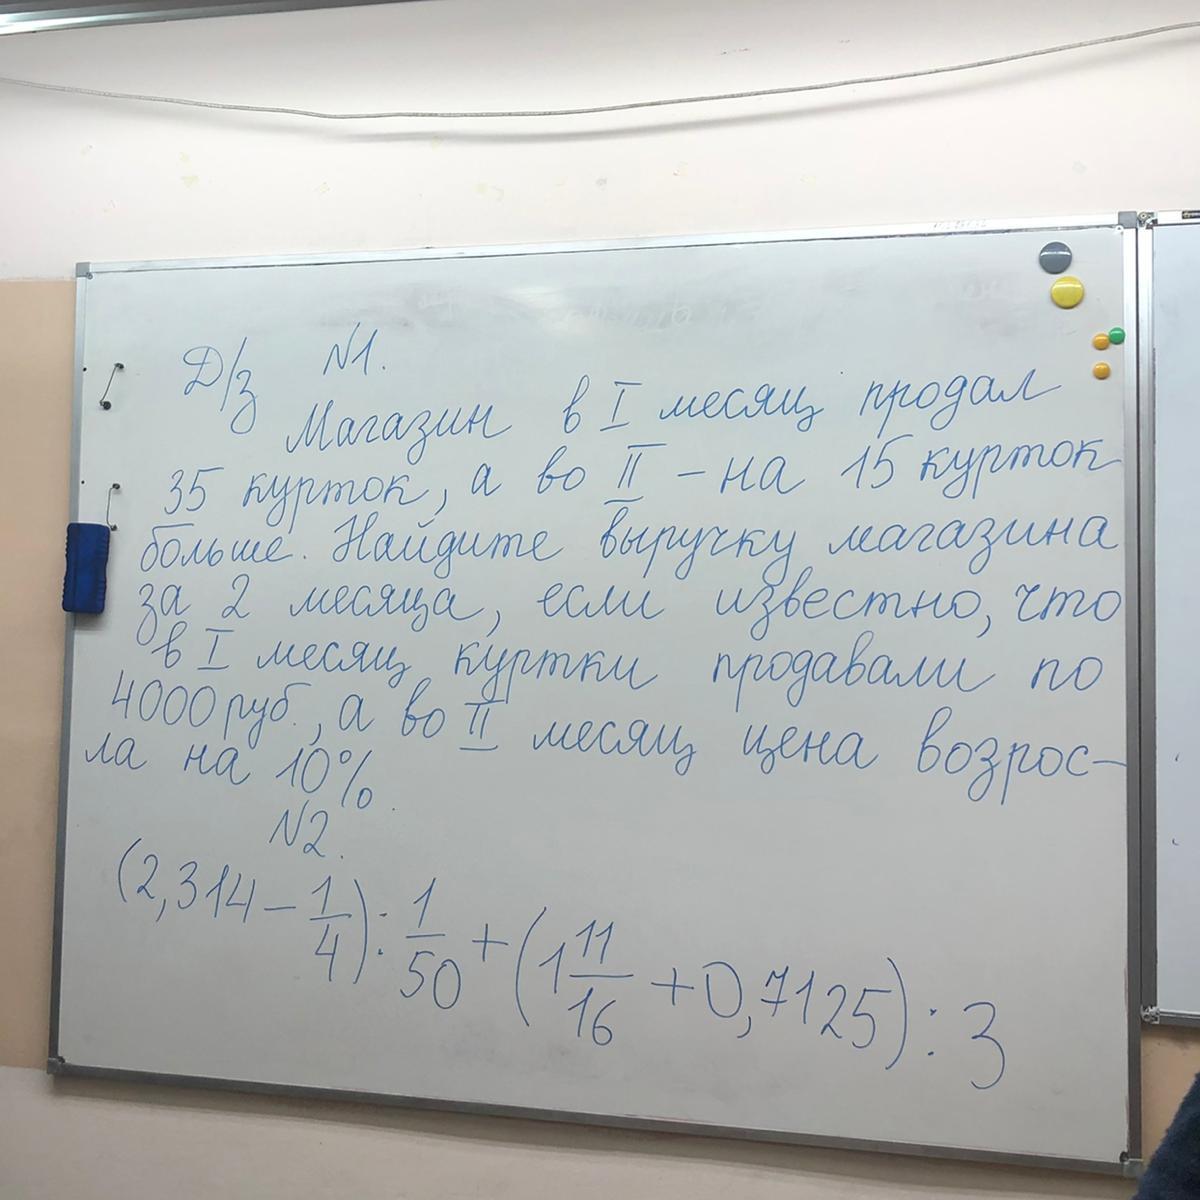 Д/з №1.
Магазин в I месяц продал
35 курток, а во II - на 15 курток
больше. Найдите выручку магазина
за 2 месяца, если известно, что
в I месяц куртки продавали по
4000 руб., а во II месяц цена возрос-
ла на 10%.
№2.
(2,314 - 1/4) : 1/50 + (1 11/16 + 0,7125) : 3